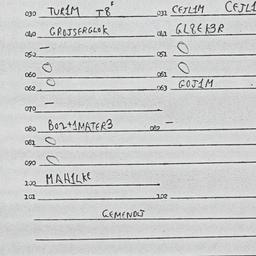 030 TUR1M T8 031 CEJL1M CEJL1
040 GROJSERGLOK 041 GL8EK3R
050 — 051 O
060 O 061 O
062 O 063 GOJ1M
070 —
080 BO2+1MATER3 082 —
081 O
090 O
100 MAH1LKE
101 102
GEMENDEJ